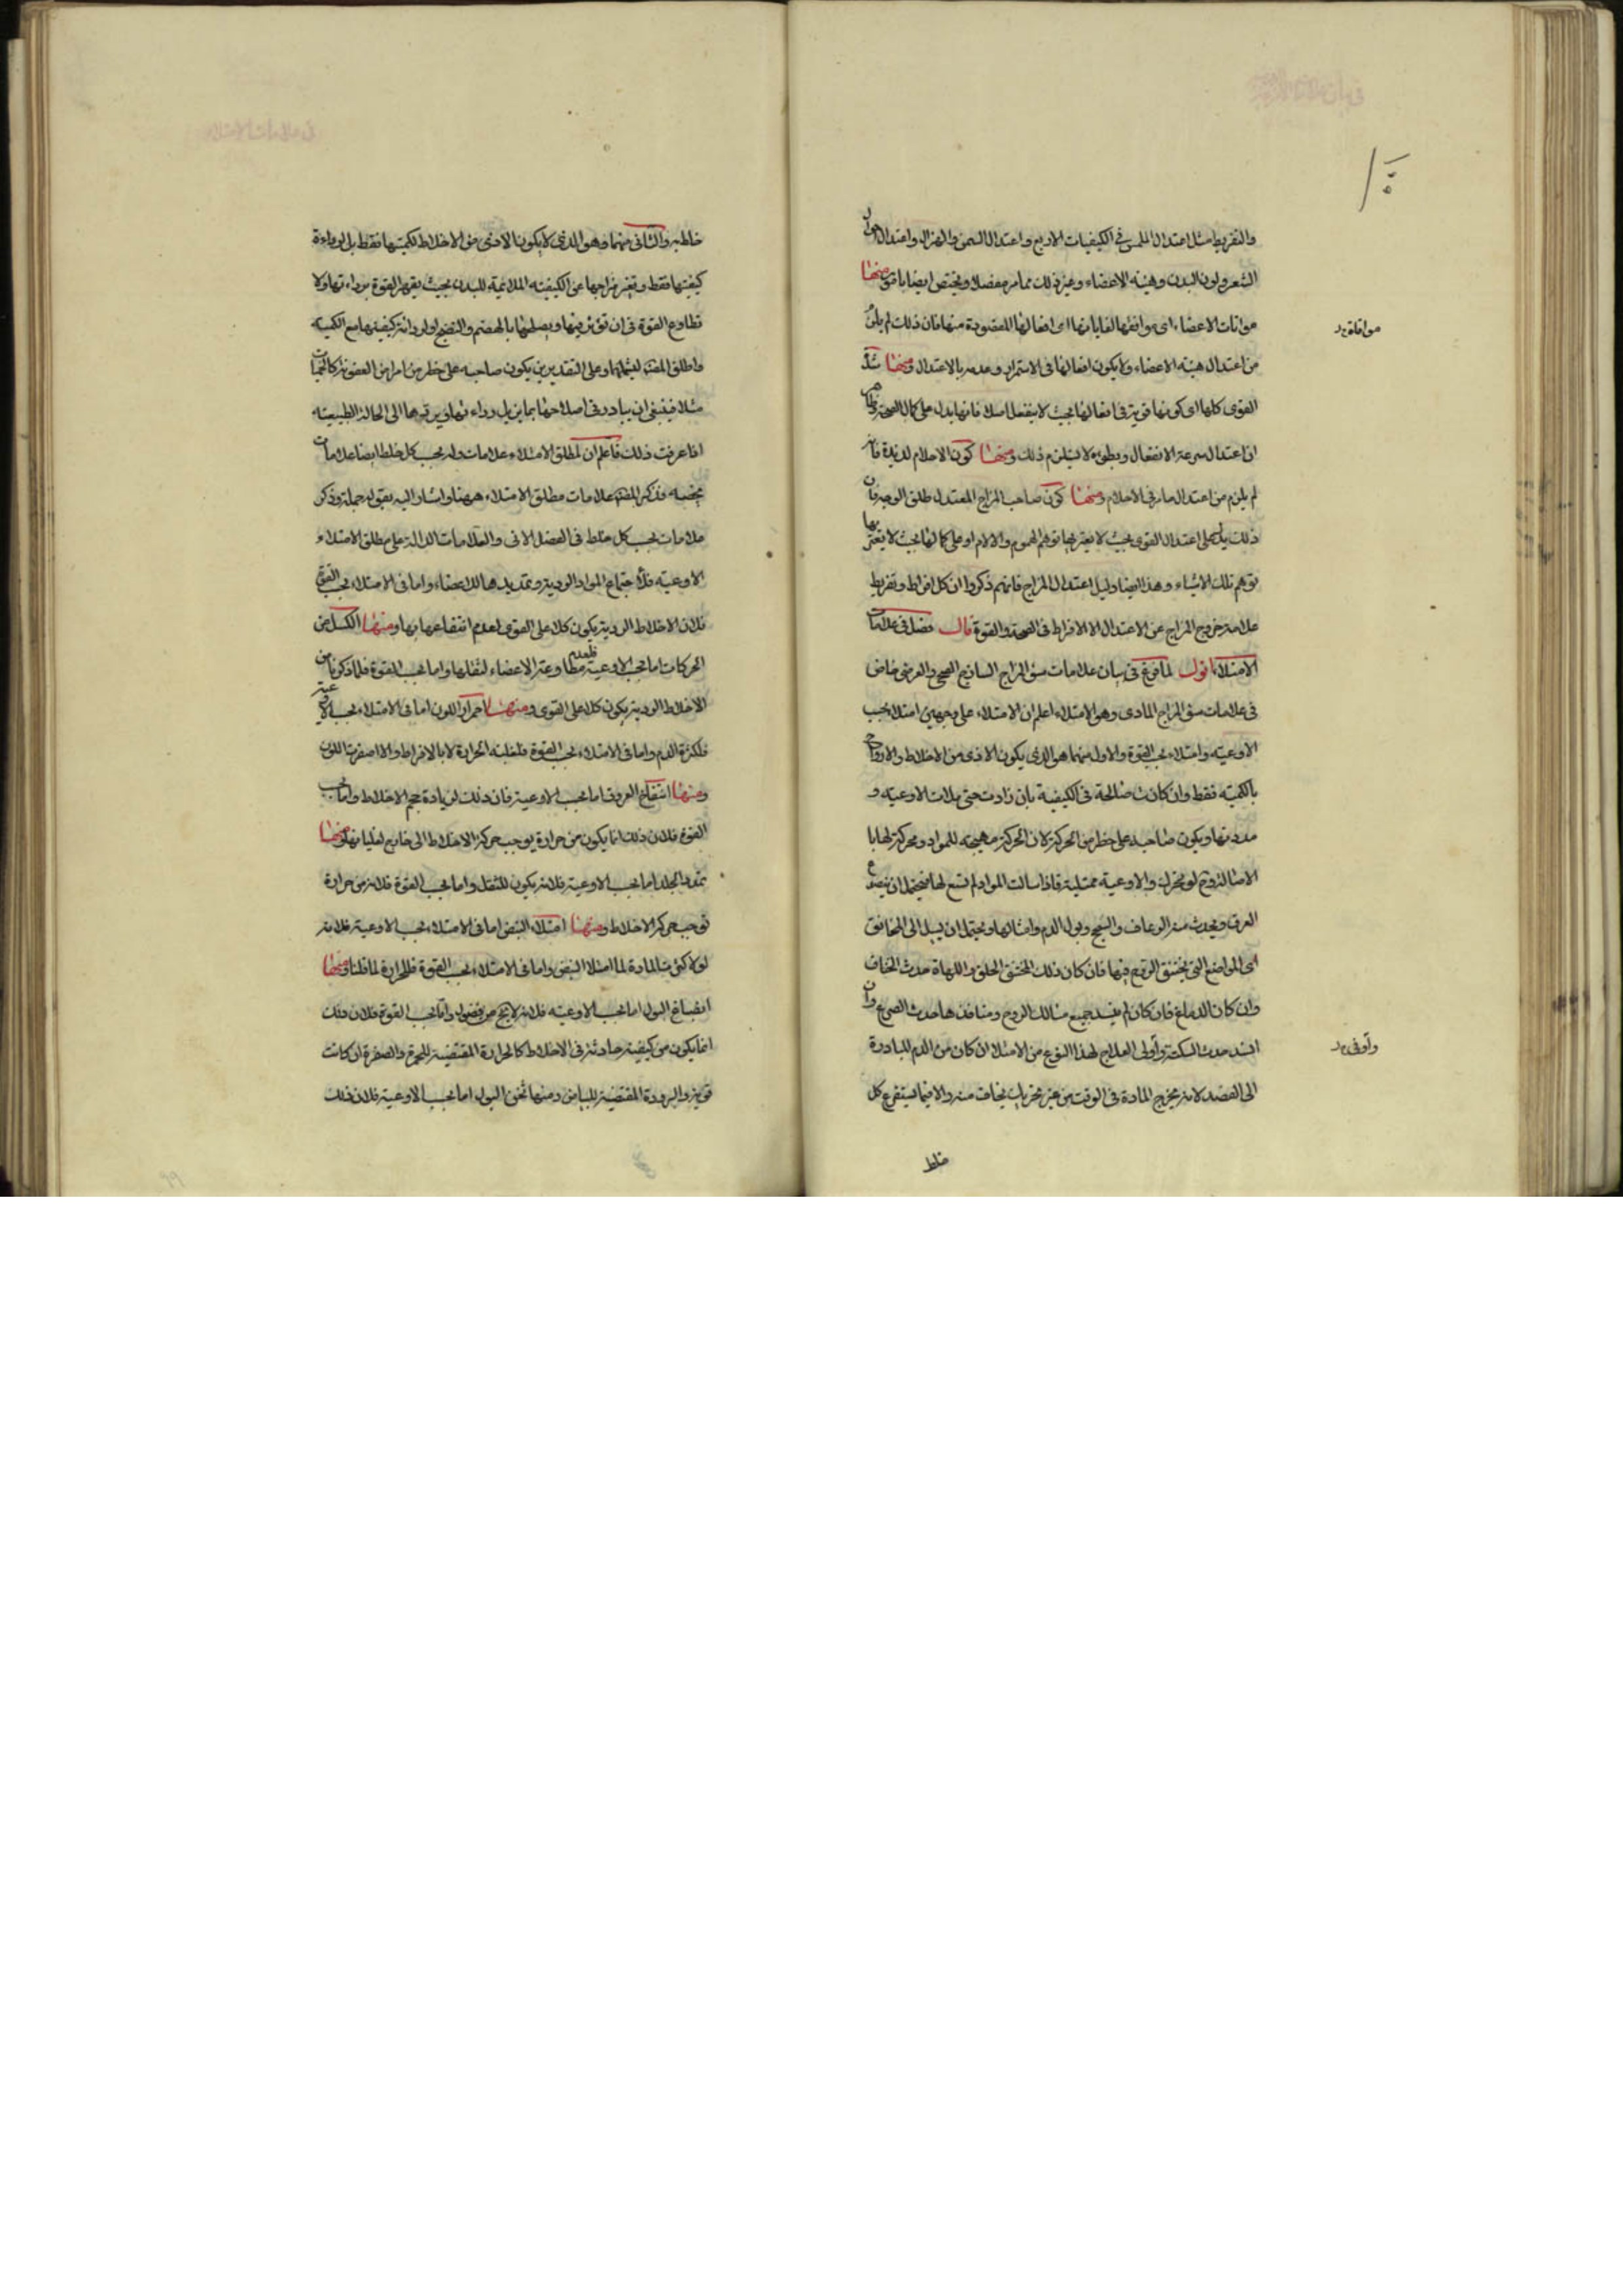 والتفريط مثل اعتدال الملمس في الكيفيات الاربع واعتدال السمن والهزال واعتدال احوال
الشعر ولون البدن وهيئة الاعضاء وغير ذلك مما مر مفصلا ويختص ايضا بامور منها
موافاة يد
مواتات الاعضاء اى موافقتها لغاياتها اى افعالها المقصودة منها فان ذلك لم يلزم
من اعتدال هيئة الاعضاء ولا يكون افعالها في الاستمرار وعدمه بالاعتدال ومنها شدة
القوى كلها اى كونها قوية في افعالها بحيث لا ينفعل اصلا فانها يدل على كمال الصحة
ان اعتدال سرعة الانفعال وبطئه لا يستلزم ذلك ومنها كون الاحلام لذيذة فانه
لم يلزم من اعتدال ما رفى الاحلام ومنها كون صاحب المزاج المعتدل طلق الوجه فان
ذلك يدل على اعتدال القوى بحيث لا يغيرها توهم الهموم والالام او على كمالها بحيث لا يعتريها
توهم تلك الاشياء وهذا ايضا دليل اعتدال المزاج فانهم ذكروا ان كل افراط وتفريط
علامة خروج المزاج عن الاعتدال الا الافراط في الصحة والقوة قال فصل في علامات
الامتلاء اقول لما فرغ في بيان علامات سوء المزاج الساذج الصحي والعرضي خاض
في علامات سوء المزاج المادى وهو الامتلاء اعلم ان الامتلاء على وجهين امتلاء بحسب
الاوعية وامتلاء بحسب القوة والاول منهما هو الذى يكون الاذى من الاخلاط والارواح
بالكمية فقط وان كانت صالحة في الكيفية بان زادت حتى ملات الاوعية و
مددتها ويكون صاحبه على خطر من الحركة لان الحركة مهيجة للمواد ومحركة لها با
لو تحرك والاوعية ممتلية فاذا سالت المواد لم تسع لها فيحتمل ان ينصدع
العرق ويحدث منه الرعاف والسحج وبول الدم وامثالها ويحتمل ان يسيل الى المخانق
اى المواضع التى يختنق الروح فيها فان كان ذلك المخنق الحلق واللهاة حدث الخناق
وان كان الدماغ فان كان لم يسد جميع مسالك الروح ومنافذها حدث الصرع وان
وأوفى يد
انسد حدث السكتة وأولى العلاج لهذا النوع من الامتلاء ان كان من الدم المبادرة
الى الفصد لانه يخرج المادة في الوقت من غير تحريك يخاف منه والا فيما يستفرغ كل
خلط
خلط به والثانى منهما وهو الذى لا يكون الاذى من الاخلاط لكميتها فقط بل لرداءة
كيفيتها فقط وتغير مزاجها عن الكيفية الملائمة للبدن بحيث يقهر القوة برداءتها ولا
تطاوع القوة في ان تؤثر فيها ويصلحها بالهضم والنضج او لرداءة كيفيتها مع الكمية
واطلق المصنف ليشملها وعلى التقديرين يكون صاحبه على خطر من امراض العفونة كالحميات
مثلا فينبغى ان يبادر في اصلاحها بما يزيل رداءتها ويردها الى الحالة الطبيعية
اذا عرفت ذلك فاعلم ان لمطلق الامتلاء علامات وله بحسب كل خلط ايضا علامات
تخصه فذكر المصنف علامات مطلق الامتلاء ههنا واشار اليه بقوله جملة وذكر
علامات بحسب كل خلط في الفصل الاتى والعلامات الدالة على مطلق الامتلاء
الاوعية فلاجتماع المواد الردية وتمديدها للاعضاء واما في الامتلاء بحسب القوة
فلان الاخلاط الردية يكون كلا على القوى لعدم انتفاعها بها ومنها الكسل عن
الحركات اما بحسب الاوعية فلعدم مطاوعة الاعضاء لثقلها واما بحسب القوة فلما ذكرنا من
الاخلاط الردية يكون كلا على القوى ومنها احمرار اللون اما في الامتلاء بحسب الاوعية
فلكثرة الدم واما في الامتلاء بحسب القوة فلغلبة الحرارة لا بالافراط والا اصفرت اللون
ومنها انتفاخ العروق اما بحسب الاوعية فان ذلك لزيادة حجم الاخلاط واما بحسب
القوة فلان ذلك انما يكون من حرارة يوجب حركة الاخلاط الى خارج لغليانها ومنها
تمدد الجلد اما بحسب الاوعية فلانه يكون للثقل واما بحسب القوة فلانه من حرارة
توجب حركة الاخلاط ومنها امتلاء النبض اما في الامتلاء بحسب الاوعية فلانه
لولا كثرة المادة لما امتلا النبض واما في الامتلاء بحسب القوة فللحرارة لما قلنا ومنها
انصباغ البول اما بحسب الاوعية فلانه لا يخ من فضول واما بحسب القوة فلان ذلك
انما يكون من كيفية حادثة في الاخلاط كالحرارة المقتضية للحمرة والصفرة ان كانت
قوية والبرودة المقتضية للبياض ومنها ثخن البول اما بحسب الاوعية فلان ذلك